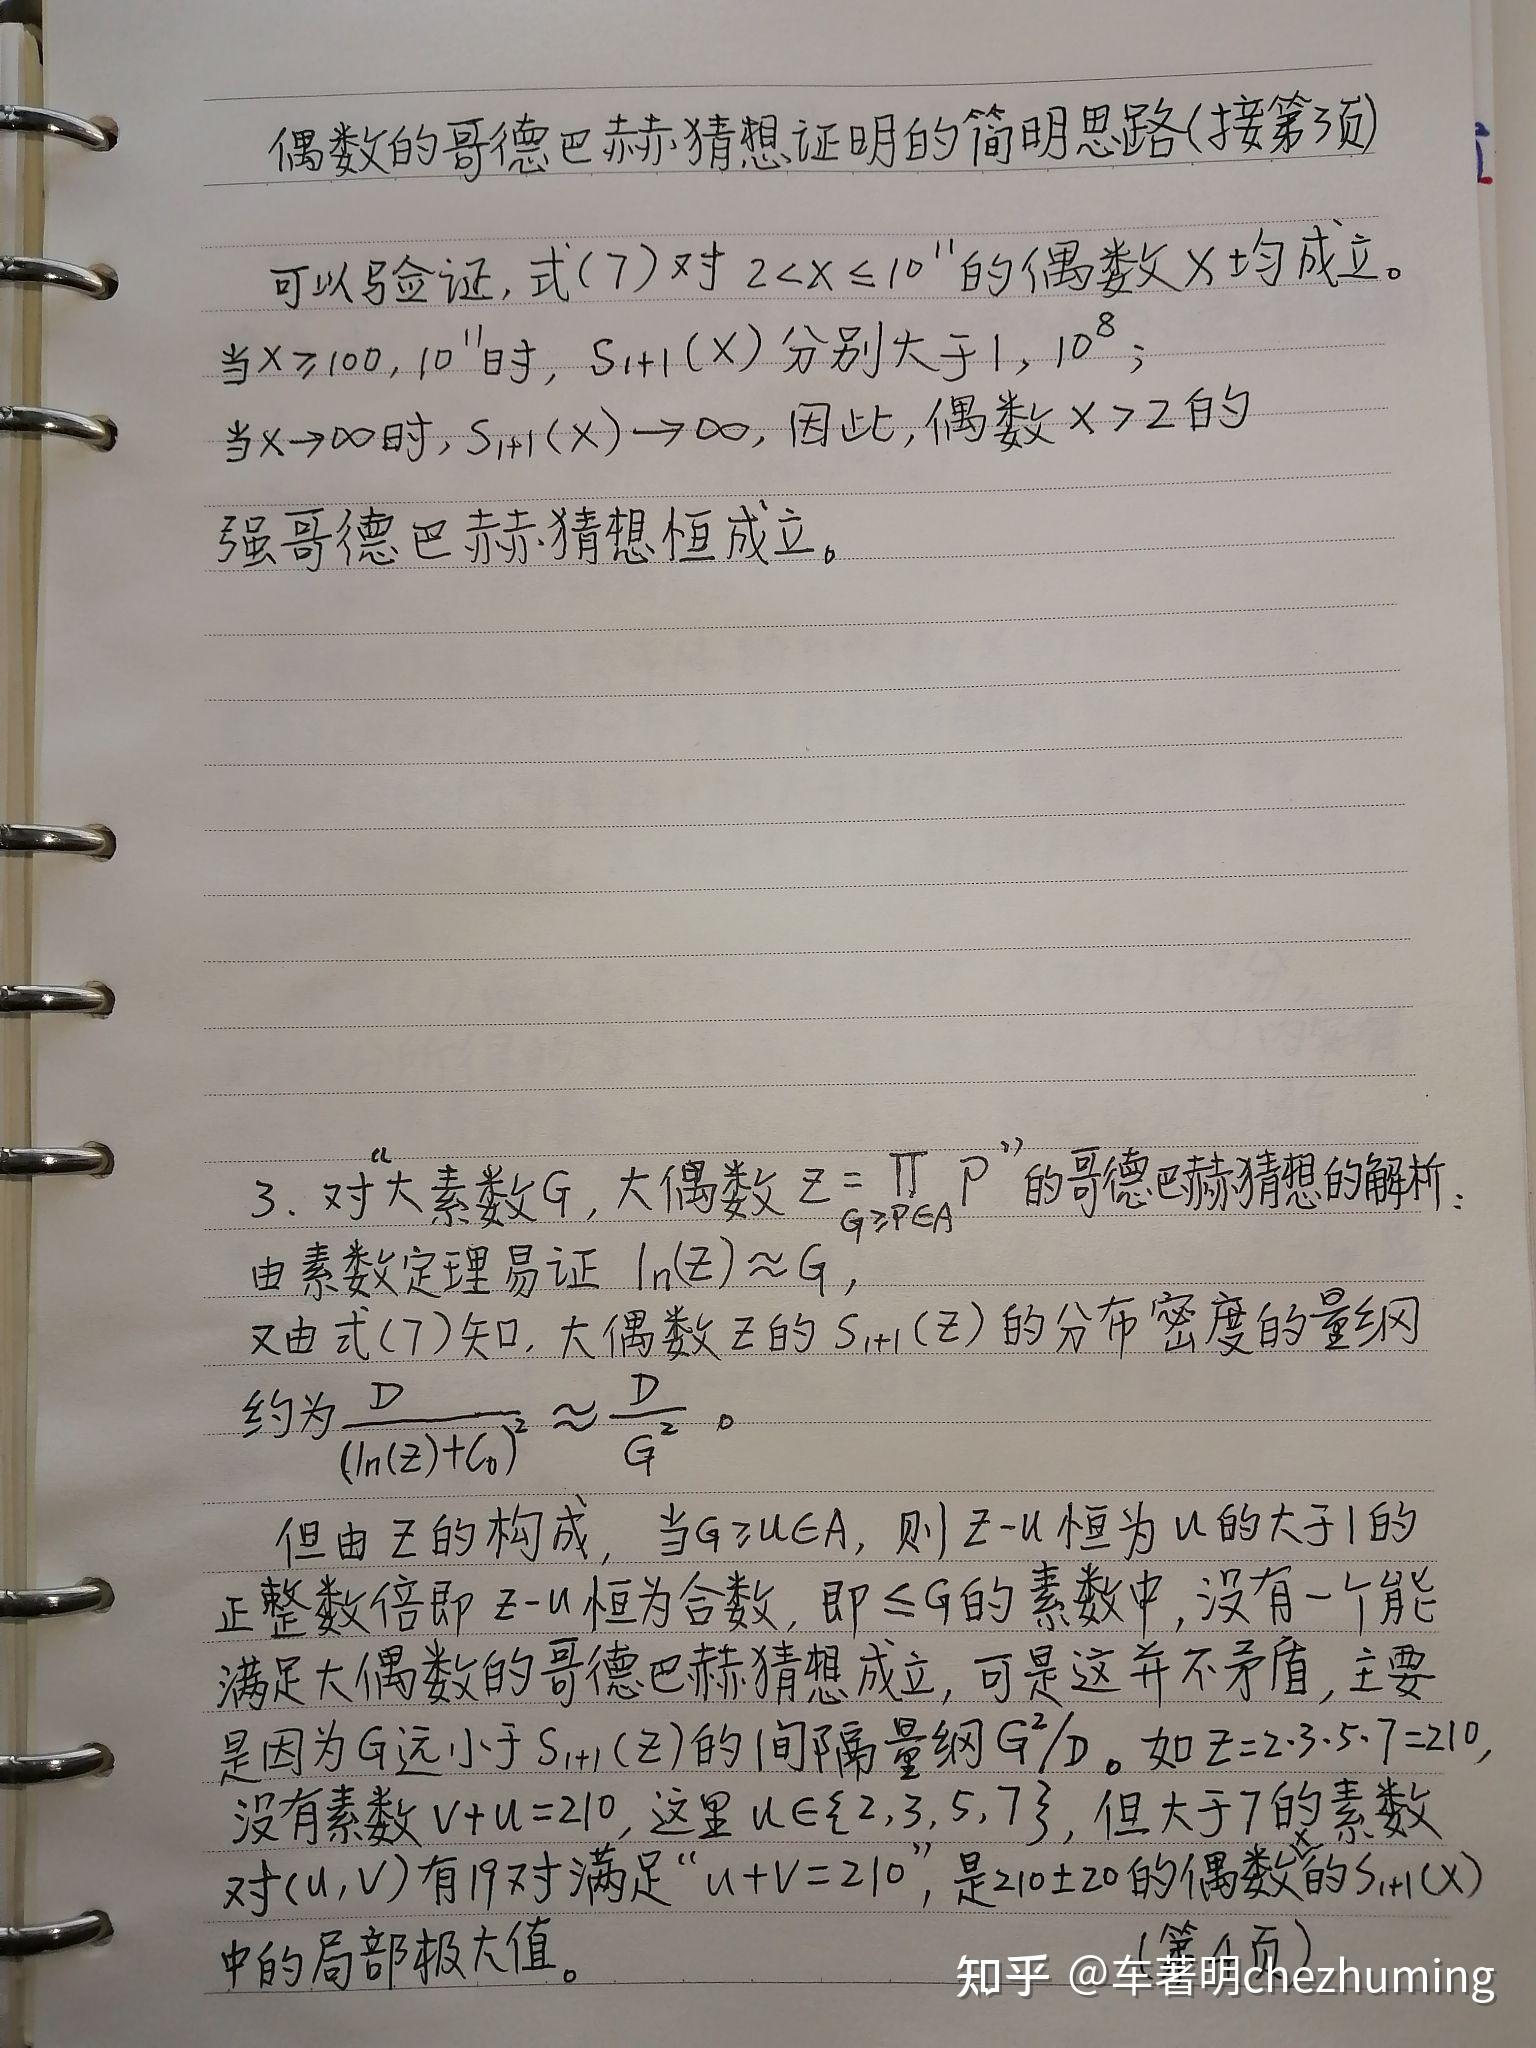 偶数的哥德巴赫猜想证明的简明思路(接第3页)
可以验证,式(7)对 2<x≤10¹¹的偶数x均成立。
当x≥100,10¹¹时,S₁₊₁(x)分别大于1,10⁸;
当x→∞时,S₁₊₁(x)→∞,因此,偶数x>2的
强哥德巴赫猜想恒成立。
3.对“大素数G,大偶数Z=∏_{G≥P∈A} P”的哥德巴赫猜想的解析:
由素数定理易证 ln(Z)≈G,
又由式(7)知,大偶数Z的S₁₊₁(Z)的分布密度的量纲
约为 D/(ln(Z)+C₀)² ≈ D/G² 。
但由Z的构成,当G≥u∈A,则Z-u恒为u的大于1的
正整数倍即Z-u恒为合数,即≤G的素数中,没有一个能
满足大偶数的哥德巴赫猜想成立,可是这并不矛盾,主要
是因为G远小于S₁₊₁(Z)的间隔量纲G²/D。如Z=2·3·5·7=210,
没有素数v+u=210,这里u∈{2,3,5,7},但大于7的素数
对(u,v)有19对满足“u+v=210”,是210±20的偶数x的S₁₊₁(x)
中的局部极大值。
(第4页)
知乎 @车著明chezhuming